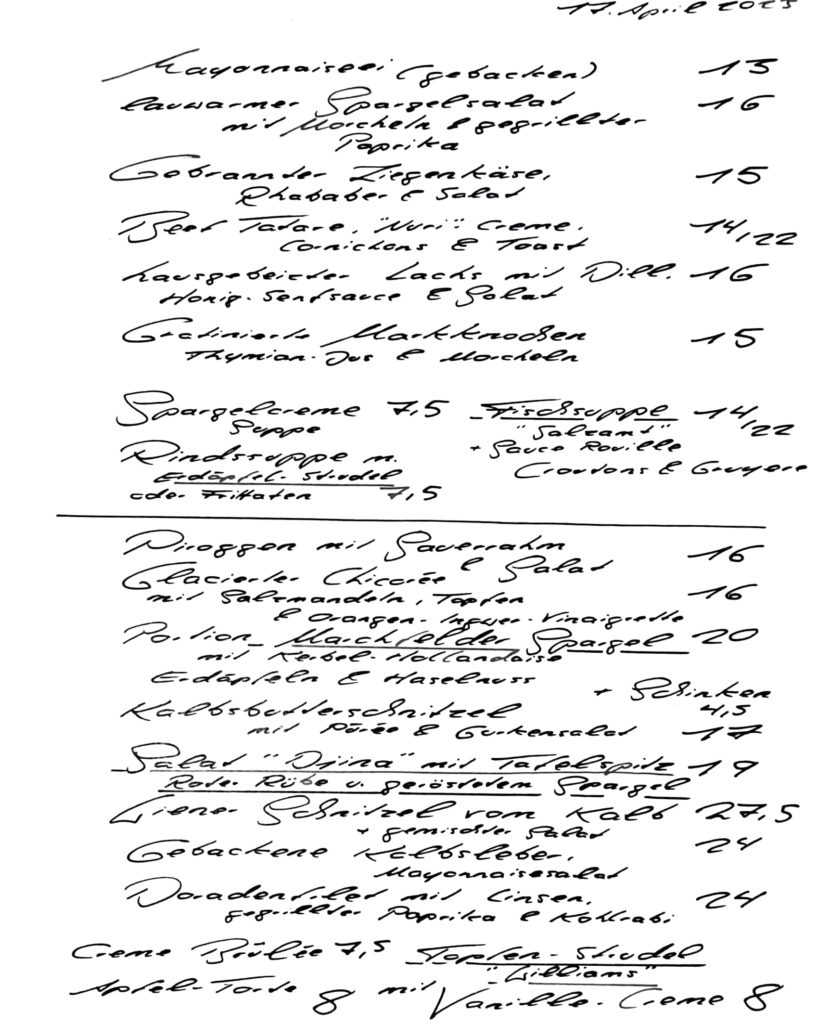 17. April 2025
Mayonnaiseei (gebacken) 13
lauwarmer Spargelsalat 16
mit Morcheln & gegrillter
Paprika
Gebrannter Ziegenkäse, 15
Rhabarber & Salat
Beef Tatare, "Nuri" Creme, 14/22
Cornichons & Toast
hausgebeizter Lachs mit Dill- 16
Honig-Senfsauce & Salat
Gratinierte Markknochen 15
Thymian-Jus & Morcheln
Spargelcreme 7,5 Fischsuppe 14/22
Suppe "Salzamt"
Rindssuppe m. + Sauce Rouille
Erdäpfel-Strudel Croutons & Gruyere
oder Frittaten 7,5
Piroggen mit Sauerrahm 16
& Salat
Glacierter Chicorée 16
mit Salzmandeln, Topfen
& Orangen-Ingwer-Vinaigrette
Portion Marchfelder Spargel 20
mit Kerbel-Hollandaise
Erdäpfeln & Haselnuss + Schinken
4,5
Kalbsbutterschnitzel
mit Püree & Gurkensalat 17
Salat "Djina" mit Tafelspitz 19
Roter Rübe u. geröstetem Spargel
Wiener Schnitzel vom Kalb 27,5
+ gemischter Salat
Gebackene Kalbsleber, 24
Mayonnaisesalat
Doradenfilet mit Linsen, 24
gegrillter Paprika & Kohlrabi
Creme Brûlée 7,5 Topfen-Strudel
"Williams"
Apfel-Torte 8 mit Vanille-Creme 8